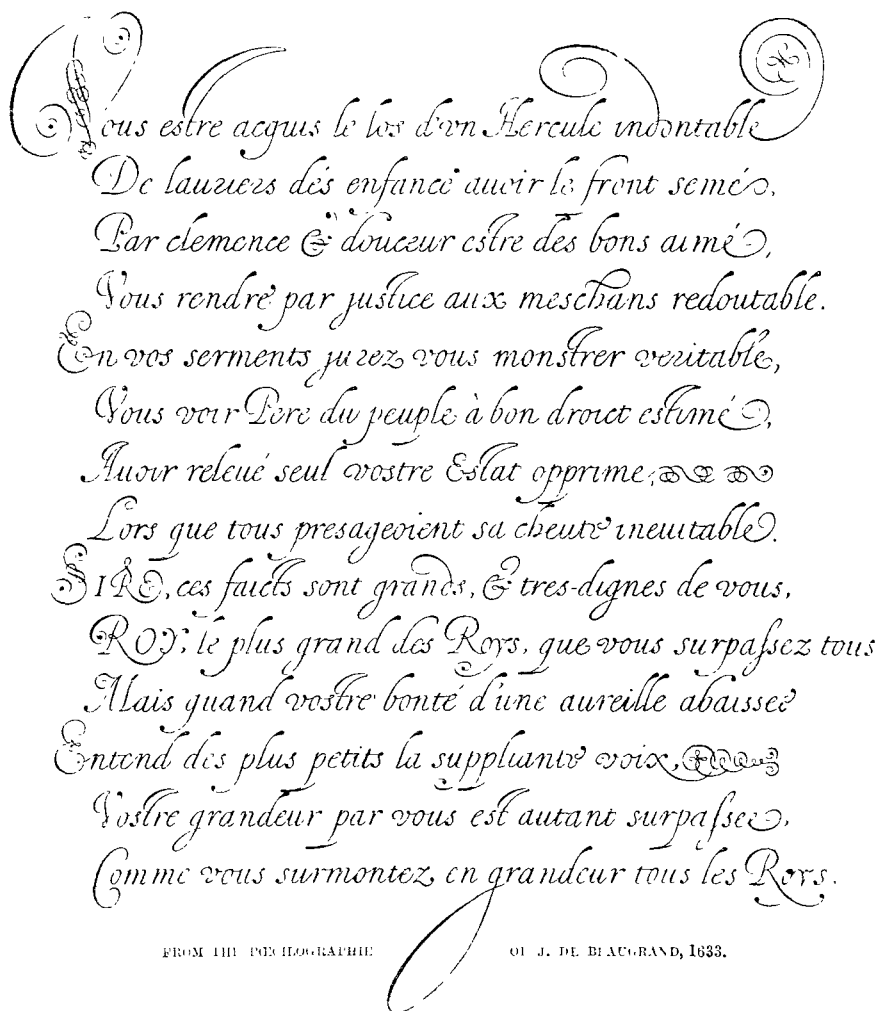 Vous estre acquis le los d'vn Hercule indontable
De lauriers dés enfance auoir le front semé,
Par clemence & douceur estre des bons aimé,
Vous rendre par justice aux meschans redoutable.
En vos serments jurez vous monstrer veritable,
Vous voir Pere du peuple à bon droict estimé,
Auoir releué seul vostre Estat opprimé,
Lors que tous presageoient sa cheute ineuitable.
SIRE, ces faicts sont grands, & tres-dignes de vous,
ROY, le plus grand des Roys, que vous surpassez tous
Mais quand vostre bonté d'une aureille abaissee
Entend des plus petits la suppliante voix,
Vostre grandeur par vous est autant surpassee,
Comme vous surmontez en grandeur tous les Roys.
FROM THE PŒCILOGRAPHIE OF J. DE BEAUGRAND, 1633.